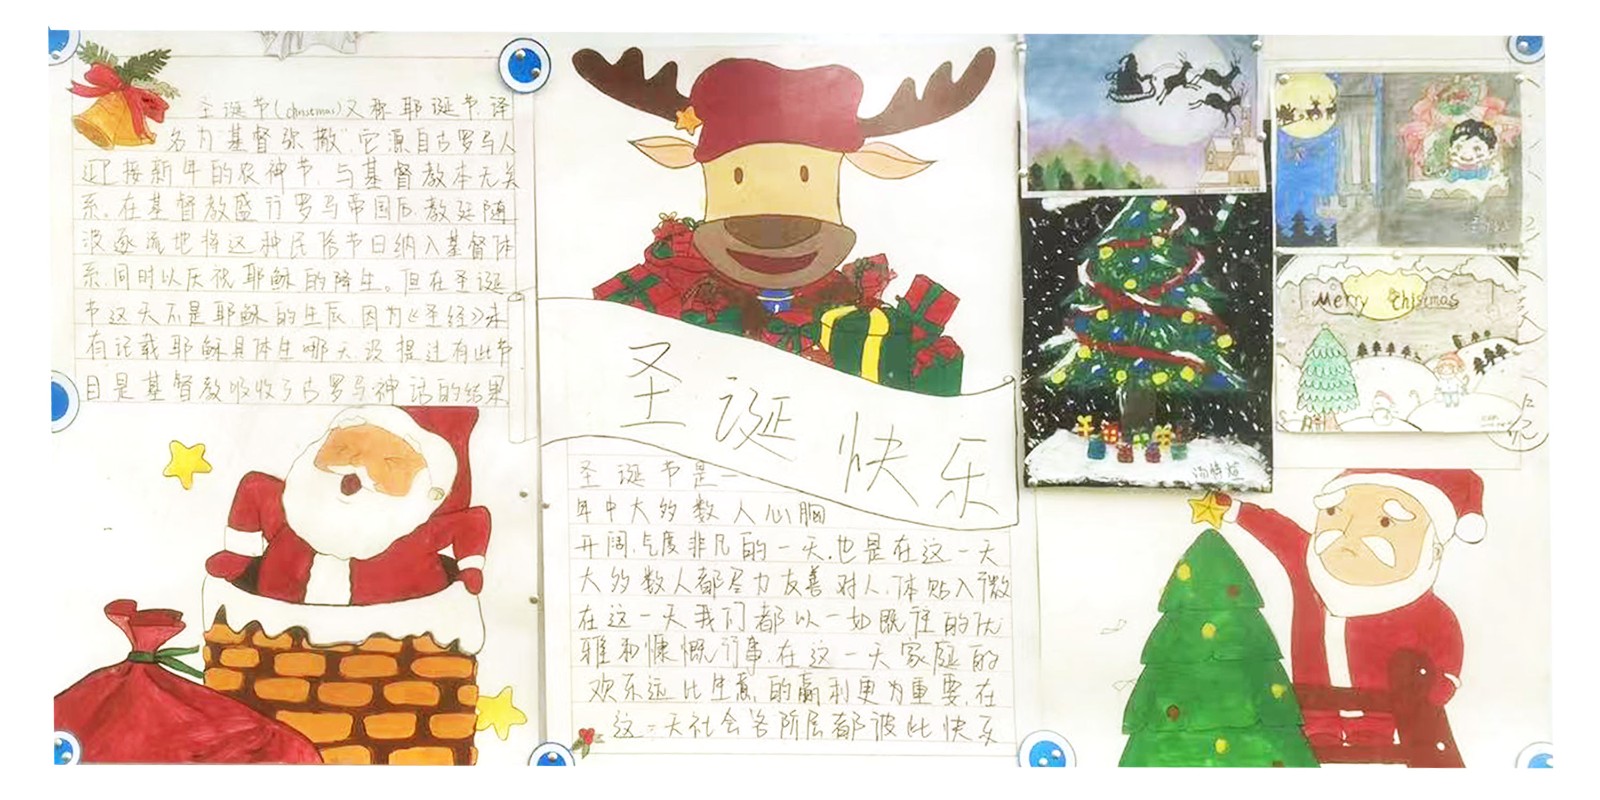 圣诞节(christmas)又称耶诞节,译
名为"基督弥撒",它源自古罗马人
迎接新年的农神节,与基督教本无关
系。在基督教盛行罗马帝国后,教廷随
波逐流地将这种民俗节日纳入基督体
系,同时以庆祝耶稣的降生。但在圣诞
节这天不是耶稣的生辰,因为《圣经》未
有记载耶稣具体生哪天,没提过有此节
日是基督教吸收了古罗马神话的结果
圣诞快乐
圣诞节是一
年中大的数人心胸
开阔,气度非凡的一天,也是在这一天
大的数人都尽力友善对人,体贴入微
在这一天我们都以一如既往的优
雅和慷慨行事,在这一天家庭的
欢乐远比生意的赢利更为重要,在
这一天社会各阶层都彼此快乐
Merry Chisimas